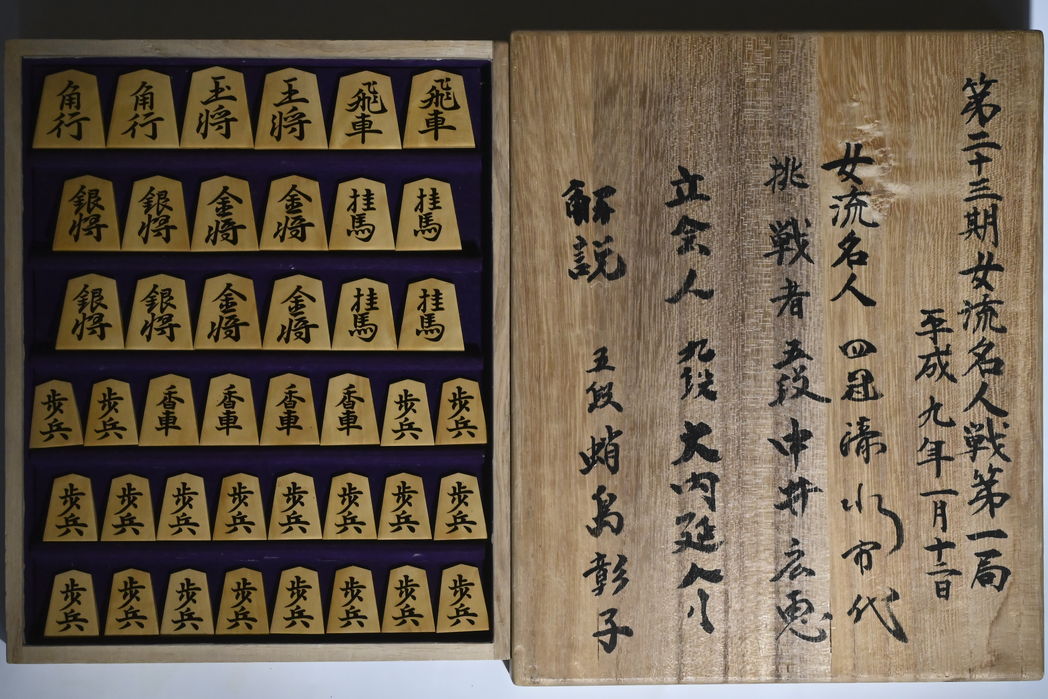 角行 角行 玉将 王将 飛車 飛車
銀将 銀将 金将 金将 桂馬 桂馬
銀将 銀将 金将 金将 桂馬 桂馬
歩兵 歩兵 香車 香車 香車 香車 歩兵 歩兵
歩兵 歩兵 歩兵 歩兵 歩兵 歩兵 歩兵 歩兵
歩兵 歩兵 歩兵 歩兵 歩兵 歩兵 歩兵 歩兵
第二十三期女流名人戦第一局
平成九年一月十二日
女流名人 四冠 清水市代
挑戦者 五段 中井広恵
立会人 九段 大内延介
解説 五段 蛸島彰子